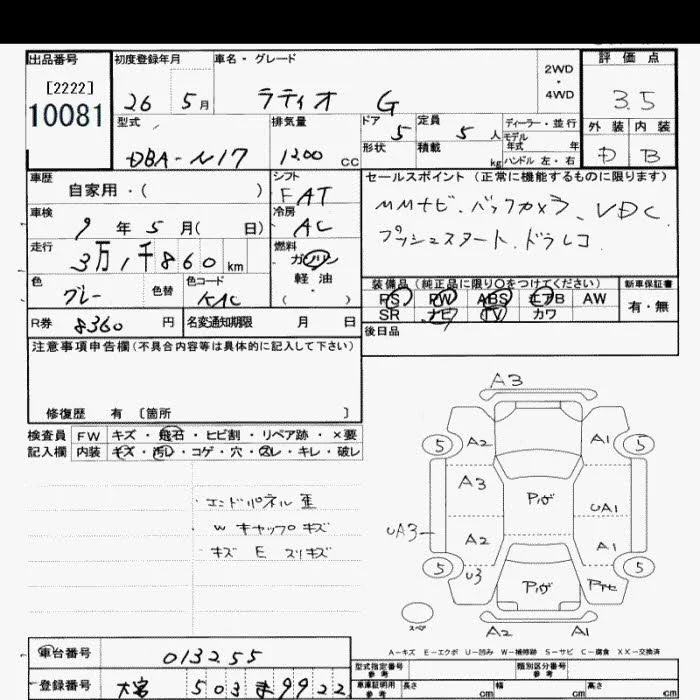 出品番号 初度登録年月 車名・グレード 2WD・4WD 評価点
[2222]
10081
26 5月 ラティオ G 3.5
型式 排気量 ドア 定員 ディーラー・並行 外装 内装
DBA-N17 1200 cc 5 5人 モデル年式 年 D B
形状 積載 kg ハンドル 左・右
車歴 シフト セールスポイント (正常に機能するものに限ります)
自家用・( ) FAT
車検 冷房 MMナビ.バックカメラ.VDC
9年5月( 日) AC プッシュスタート.ドラレコ
走行 燃料
3万1千860km ガソリン
色 色替 色コード 軽油 装備品 (純正品に限り○をつけてください) 新車保証書
グレー KAC (・) PS PW ABS エアB AW 有・無
R券 8360円 名変通知期限 月 日 SR ナビ TV カワ
後日品
注意事項申告欄 (不具合内容等は具体的に記入して下さい)
修復歴 有 〔箇所 〕
検査員 FW キズ・飛石・ヒビ割・リペア跡・×要
記入欄 内装 キズ・汚レ・コゲ・穴・スレ・キレ・破レ
エンドパネル歪
W キャップ キズ
キズ E スリキズ
A3
5 A2 A1 5
A3 Pハゲ UA1
UA3 A2 A1
5 U3 Pハゲ 5
スペア A2 A1
A-キズ E-エクボ U-凹み W-補修跡 S-サビ C-腐食 XX-交換済
車台番号 013255 型式指定番号 参考 類別区分番号 参考
登録番号 大宮 503 ま 9922 車庫証明用 参考 長さ cm 幅 cm 高さ cm